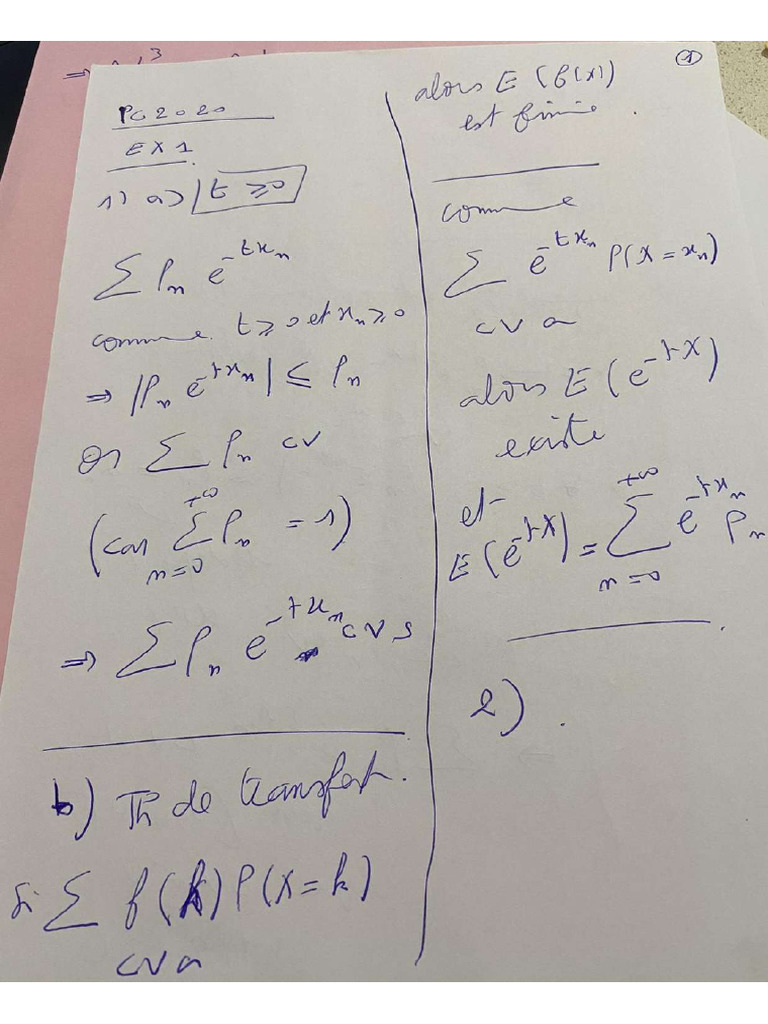 ①
PC 2020
EX 1
1) a) | t ≥ 0
∑ Pₙ e^{-txₙ}
comme t ≥ 0 et xₙ ≥ 0
⇒ |Pₙ e^{-txₙ}| ≤ Pₙ
or ∑ Pₙ cv
(car ∑_{n=0}^{+∞} Pₙ = 1)
⇒ ∑ Pₙ e^{-txₙ} cvs
b) Th de transfert.
si ∑ f(k) P(X = k)
cva
alors E (f(X))
est finie.
comme
∑ e^{-txₙ} P(X = xₙ)
cva
alors E(e^{-tX})
existe
et
E(e^{-tX}) = ∑_{n=0}^{+∞} e^{-txₙ} Pₙ
2) .